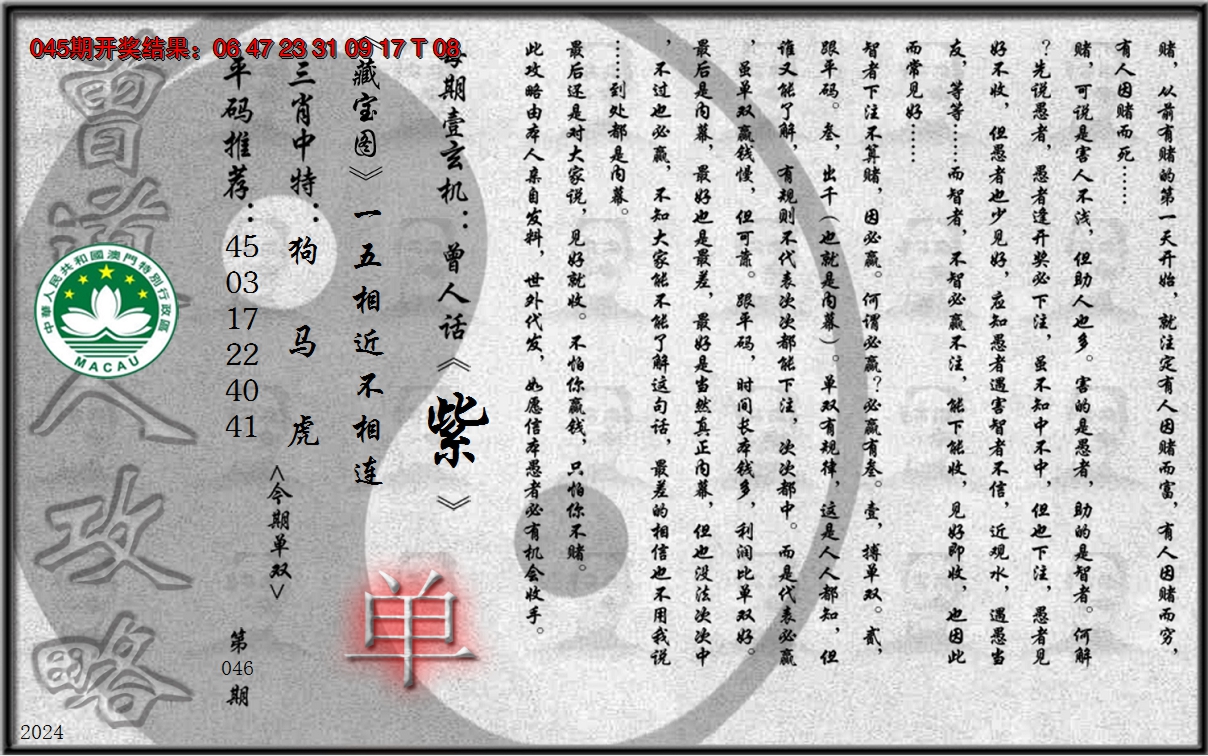 045期开奖结果：06 47 23 31 09 17 T 08
赌，从前有赌的第一天开始，就注定有人因赌而富，有人因赌而穷，
有人因赌而死……
赌，可说是害人不浅，但助人也多。害的是愚者，助的是智者。何解
？先说愚者，愚者逢开奖必下注，虽不知中不中，但也下注，愚者见
好不收，但愚者也少见好，应知愚者遇害智者不信，近观水，遇愚当
友，等等……而智者，不智必赢不注，能下能收，见好即收，也因此
而常见好……
智者下注不算赌，因必赢。何谓必赢？必赢有叁。壹，搏单双。贰，
跟平码。叁，出千（也就是内幕）。单双有规律，这是人人都知，但
谁又能了解，有规则不代表次次都能下注，次次都中。而是代表必赢
，虽单双赢钱慢，但可靠。跟平码，时间长本钱多，利润比单双好。
最后是内幕，最好也是最差，最好是当然真正内幕，但也没法次次中
，不过也必赢，不知大家能不能了解这句话，最差的相信也不用我说
……到处都是内幕。
最后还是对大家说，见好就收。不怕你赢钱，只怕你不赌。
此攻略由本人亲自发料，世外代发，如愿信本愚者必有机会收手。
每期壹玄机：曾人话《紫》
《藏宝图》一五相近不相连
单
三肖中特：狗 马 虎
<今期单双>
平码推荐：45 03 17 22 40 41
第046期
曾道人攻略
中華人民共和國澳門特別行政區
MACAU
2024